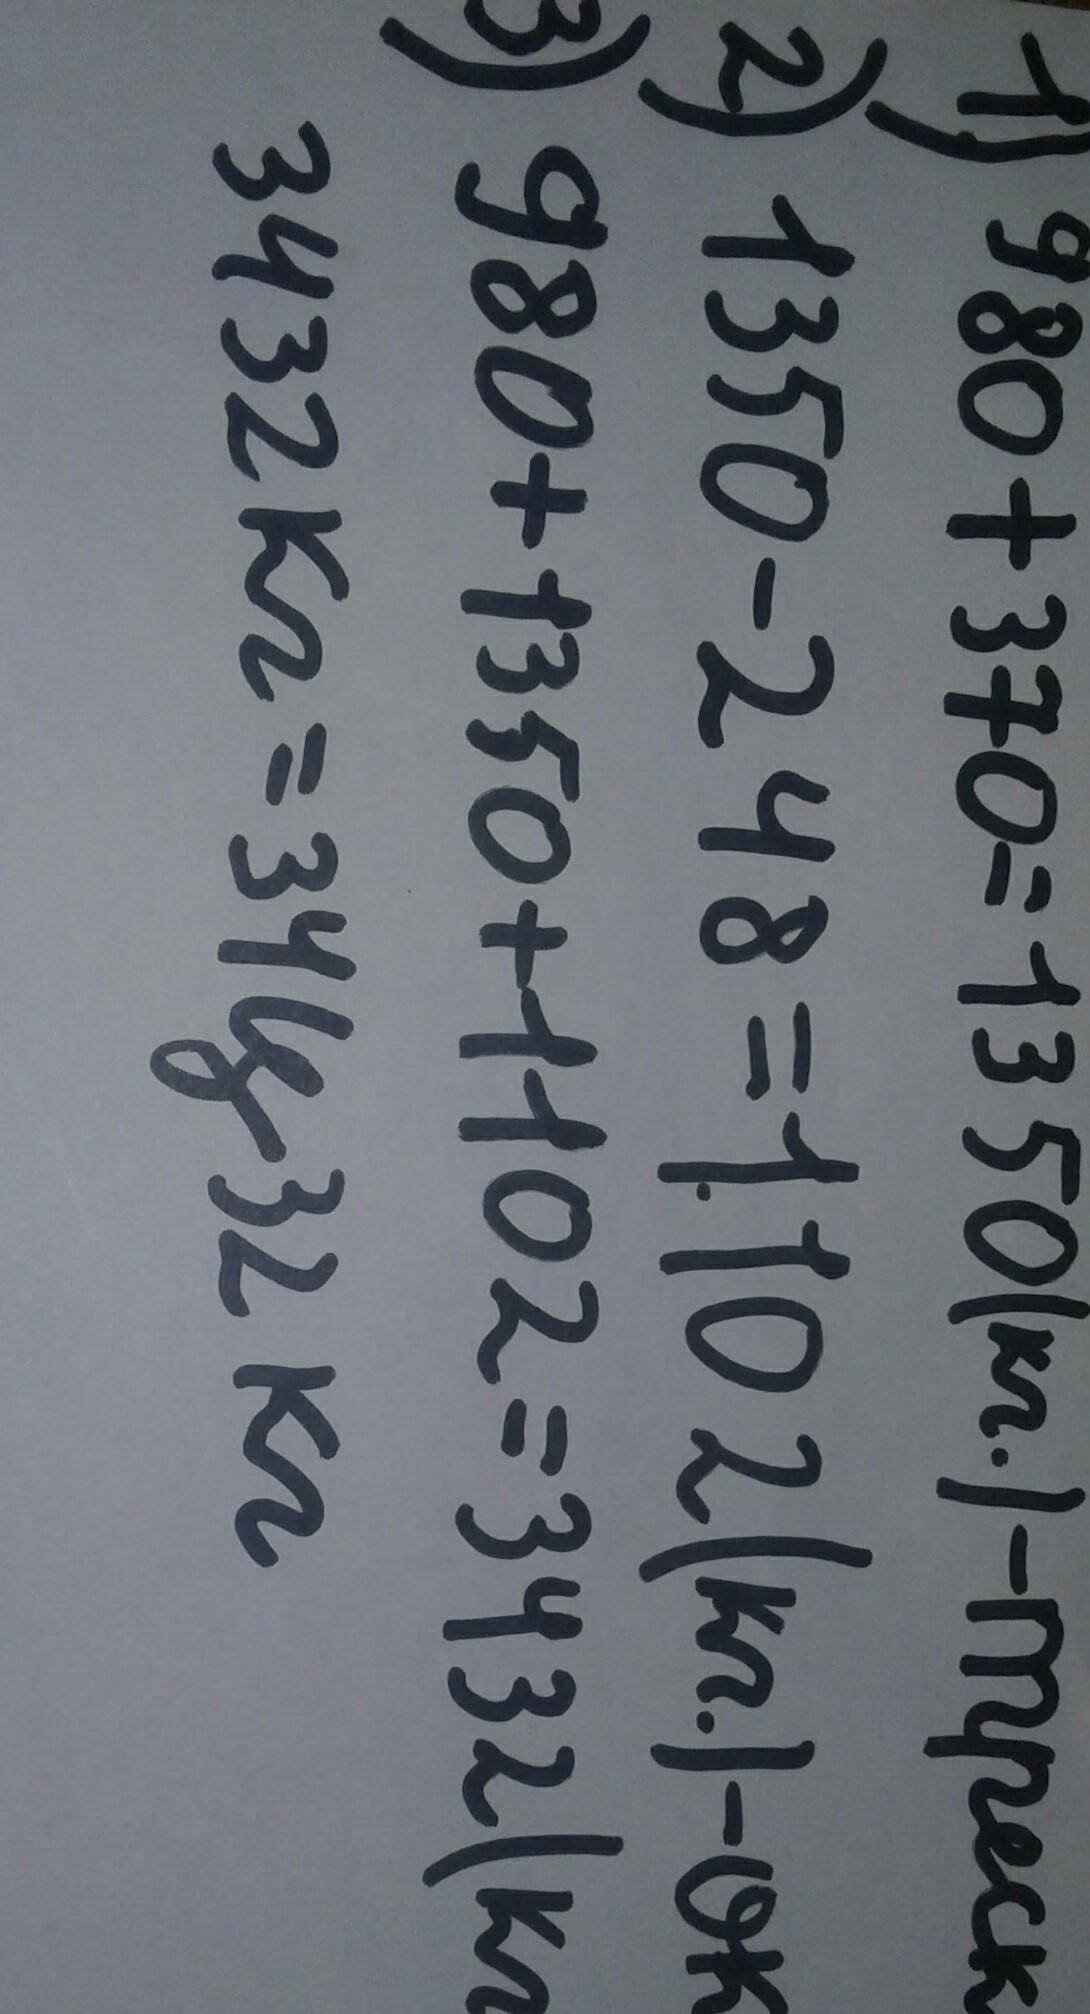 1) 980+370=1350(кг.)-треск
2) 1350-248=1102(кг.)-ок
3) 980+1350+1102=3432(кг
3432кг=34ц 32кг